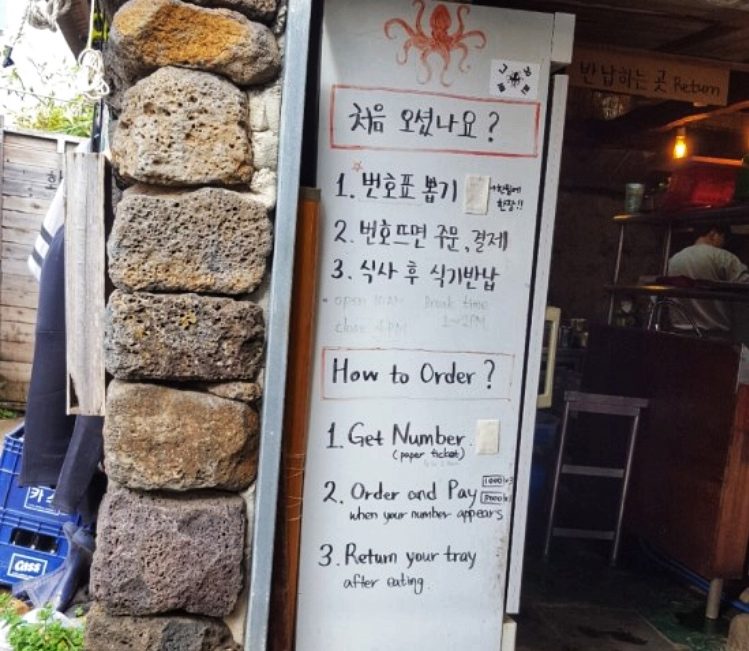 반납하는 곳 Return
처음 오셨나요?
1. 번호표 뽑기
한팀에
한장!!
2. 번호뜨면 주문, 결제
3. 식사 후 식기반납
open 10AM Break time
close 4PM 1~2PM
How to Order?
1. Get Number
(paper ticket)
2. Order and Pay
when your number appears
3. Return your tray
after eating
카스
Cass